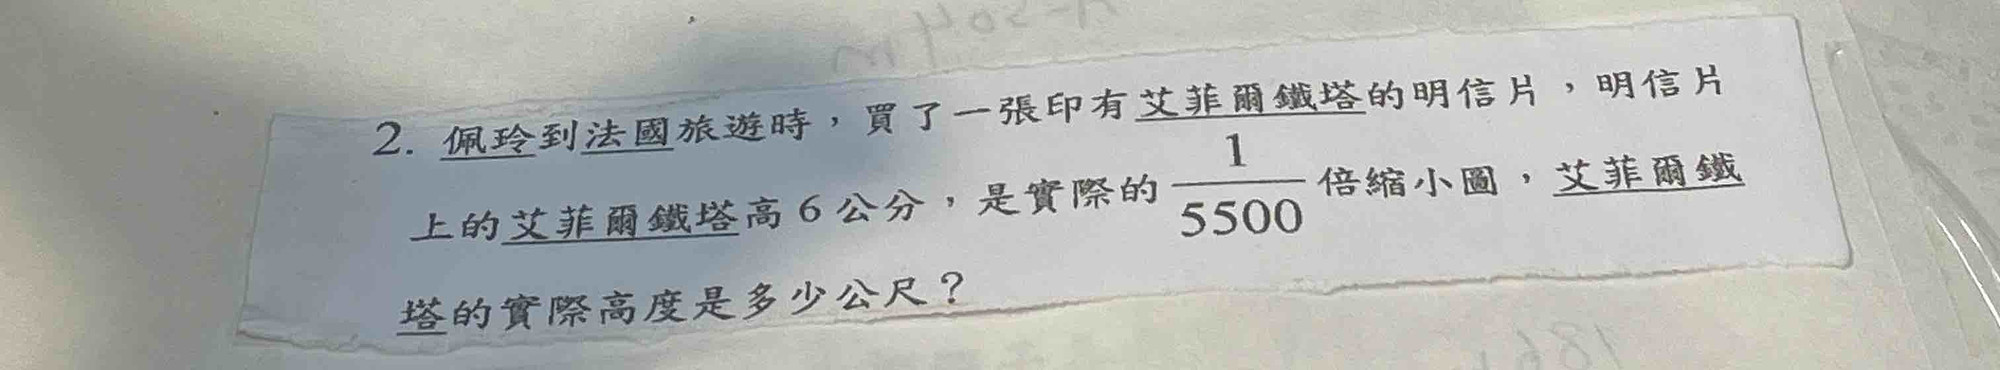 2. 佩玲到法國旅遊時，買了一張印有艾菲爾鐵塔的明信片，明信片
上的艾菲爾鐵塔高6公分，是實際的 1/5500 倍縮小圖，艾菲爾鐵
塔的實際高度是多少公尺？